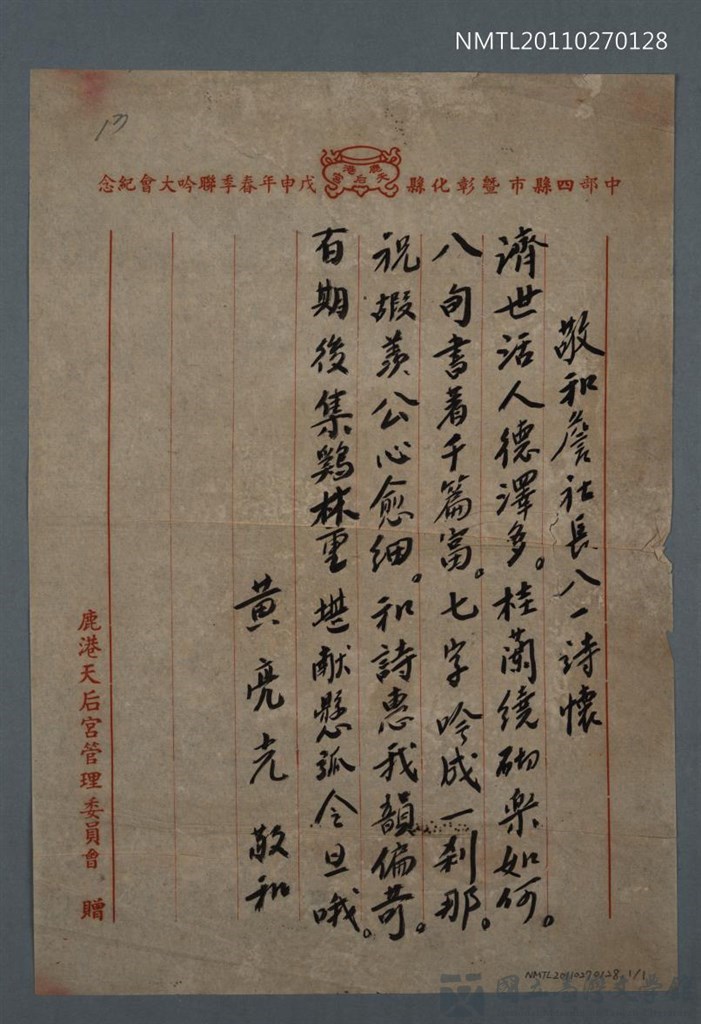 NMTL20110270128
中部四縣市暨彰化縣
鹿港天后宮
戊申年春季聯吟大會紀念
敬和詹社長八一詩懷
濟世活人德澤多。桂蘭繞砌樂如何。
八旬書著千篇富。七字吟成一剎那。
祝嘏羨公心愈細。和詩惠我韻偏苛。
百期後集鷄林重堪献懸弧令旦哦。
黃亮 敬和
鹿港天后宮管理委員會 贈
NMTL20110270128 1/1
國立台灣文學館